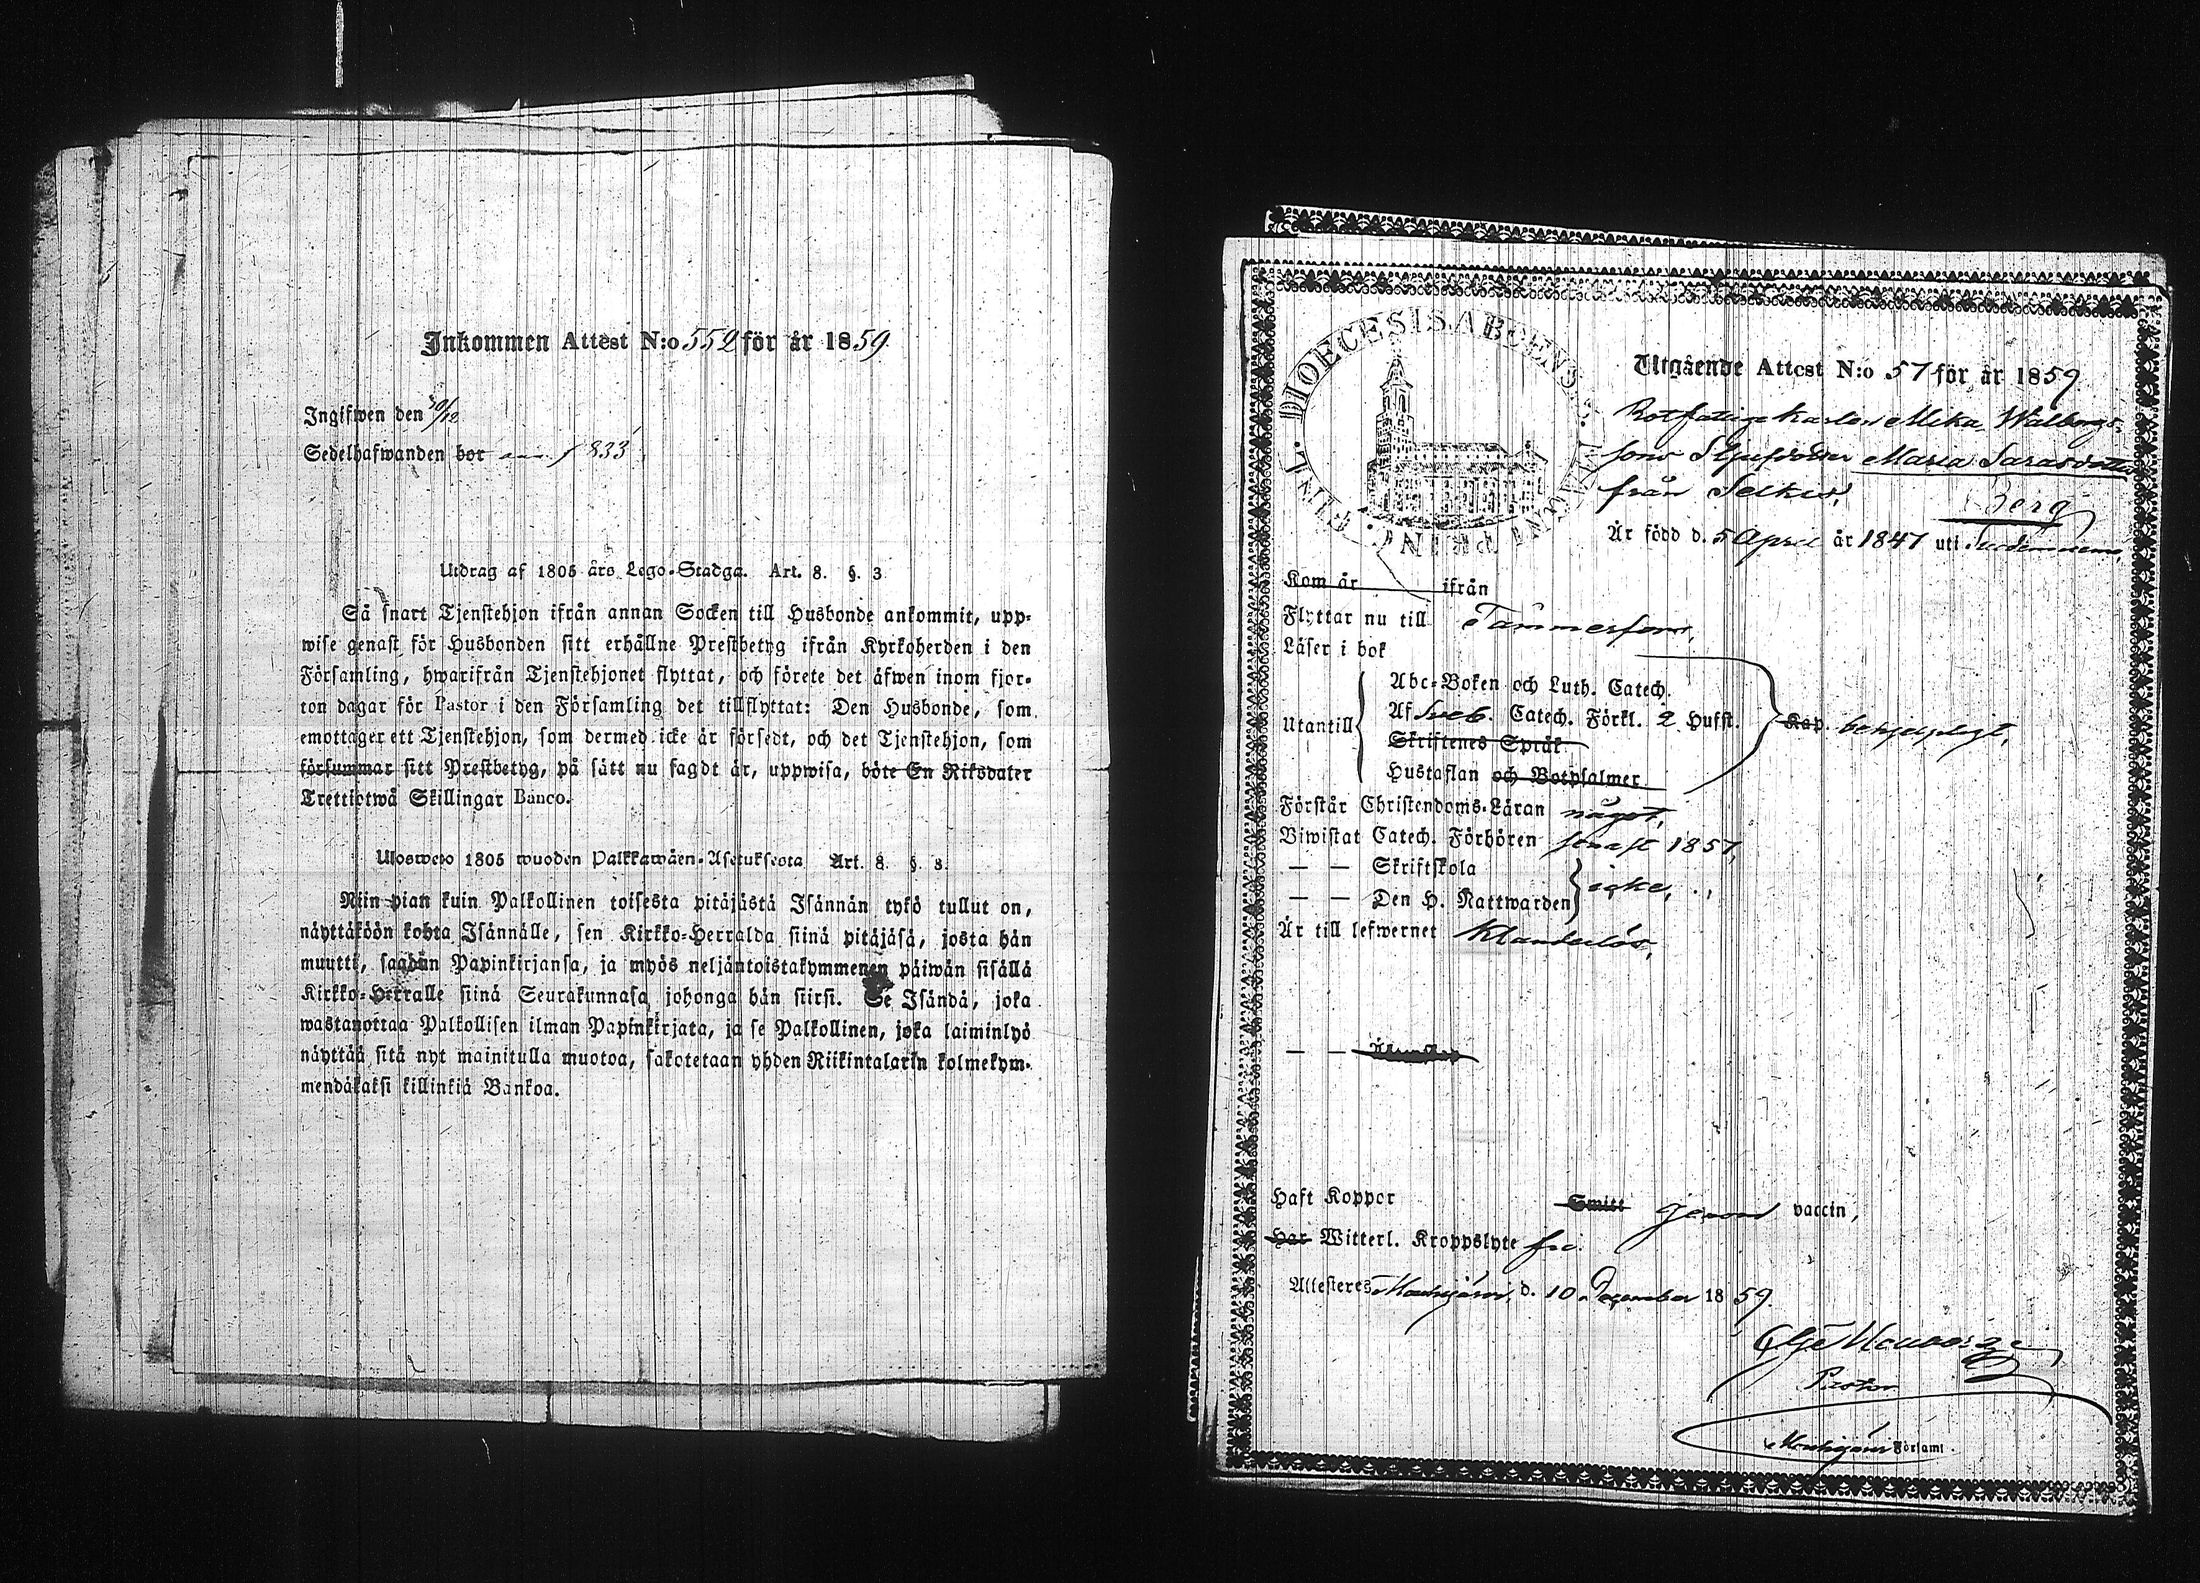 Inkommen Attest N:o 552 för år 1859
Ingifwen den 30/12
Sedelhafwanden bor 833
Utdrag af 1805 års Lego-Stadga. Art. 8. §. 3
Så snart Tjenstehjon ifrån annan Socken till Husbonde ankommit, upp-
wise genast för Husbonden sitt erhållne Prestbetyg ifrån Kyrkoherden i den
Församling, hwarifrån Tjenstehjonet flyttat, och förete det äfwen inom fjor-
ton dagar för Pastor i den Församling det tillflyttat: Den Husbonde, som
emottager ett Tjenstehjon, som dermed icke är försedt, och det Tjenstehjon, som
försummar sitt Prestbetyg, på sätt nu sagdt är, uppwisa, böte En Riksdaler
Trettiotwå Skillingar Banco.
Ulosweto 1805 wuoden Palkkawäen-Asetuksesta Art. 8. §. 3.
Niin pian kuin Palkollinen toisesta pitäjästä Isännän tykö tullut on,
näyttäköön kohta Isännälle, sen Kirkko-Herralda siinä pitäjäsä, josta hän
muutti, saadun Papinkirjansa, ja myös neljäntoistakymmenen päiwän sisällä
Kirkko-Herralle siinä Seurakunnasa johonga hän siirsi. Se Isändä, joka
wastanottaa Palkollisen ilman Papinkirjata, ja se Palkollinen, joka laiminlyö
näyttää sitä nyt mainitulla muotoa, sakotetaan yhden Riikintalarin kolmekym-
mendäkaksi killinkiä Bankoa.
DIOECESIS ABOENS.
Utgående Attest N:o 57 för år 1859
Rotfattige karlen Mika Walborgs-
sons Styfdotter Maria Sarasdotter
från Selkee,
Berg
Är född d. 5 April år 1847 uti
Kom år ifrån
Flyttar nu till Tammerfors,
Läser i bok
Abc-Boken och Luth. Catech.
Utantill Af Sveb. Catech. Förkl. 2 Hufst. Kap. behjelpligt,
Skriftenes Språk
Hustaflan och Botpsalmer
Förstår Christendoms-Läran något,
Biwistat Catech. Förhören 1857,
— — Skriftskola
— — Den H. Nattwarden icke,
Är till lefwernet klanderlös,
Haft Koppor Smitt genom vaccin,
Har Witterl. Kroppslyte fri.
Attesteres Mouhijärvi, d. 10 December 1859.
Pastor
Mouhijärvi Församl.